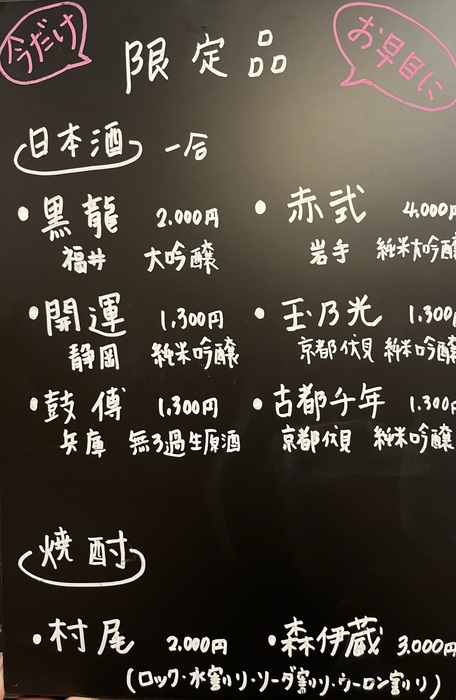 今だけ
お早目に
限定品
日本酒 一合
・黒龍 2.000円
福井 大吟醸
・赤弐 4.000円
岩手 純米大吟醸
・開運 1.300円
静岡 純米吟醸
・玉乃光 1.300円
京都伏見 純米吟醸
・鼓傳 1.300円
兵庫 無ろ過生原酒
・古都千年 1.300円
京都伏見 純米吟醸
焼酎
・村尾 2.000円
・森伊蔵 3.000円
(ロック・水割り・ソーダ割り・ウーロン割り)